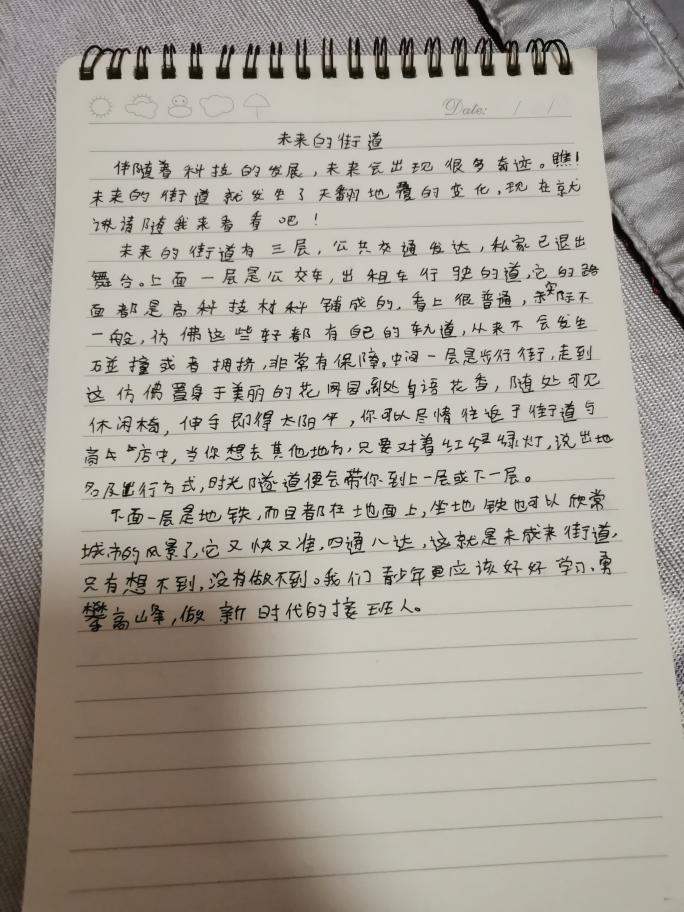 Date: / /
未来的街道
伴随着科技的发展，未来会出现很多奇迹。瞧！
未来的街道就发生了天翻地覆的变化，现在就
请随我来看看吧！
未来的街道有三层，公共交通发达，私家已退出
舞台。上面一层是公交车，出租车行驶的道，它的路
面都是高科技材料铺成的，看上很普通，实际不
一般，仿佛这些好都有自己的轨道，从来不会发生
碰撞或者拥挤，非常有保障。中间一层是步行街，走到
这仿佛置身于美丽的花园到处鸟语花香，随处可见
休闲椅，伸手即得太阳伞，你可以尽情往返于街道与
高店中，当你想去其他地方，只要对着红绿灯，说出地
名及出行方式，时光隧道便会带你到上一层或下一层。
下面一层是地铁，而且都在地面上，坐地铁也可以欣常
城市的风景了，它又快又准，四通八达，这就是未来街道，
只有想不到，没有做不到。我们青少年更应该好好学习，勇
攀高峰，做新时代的接班人。